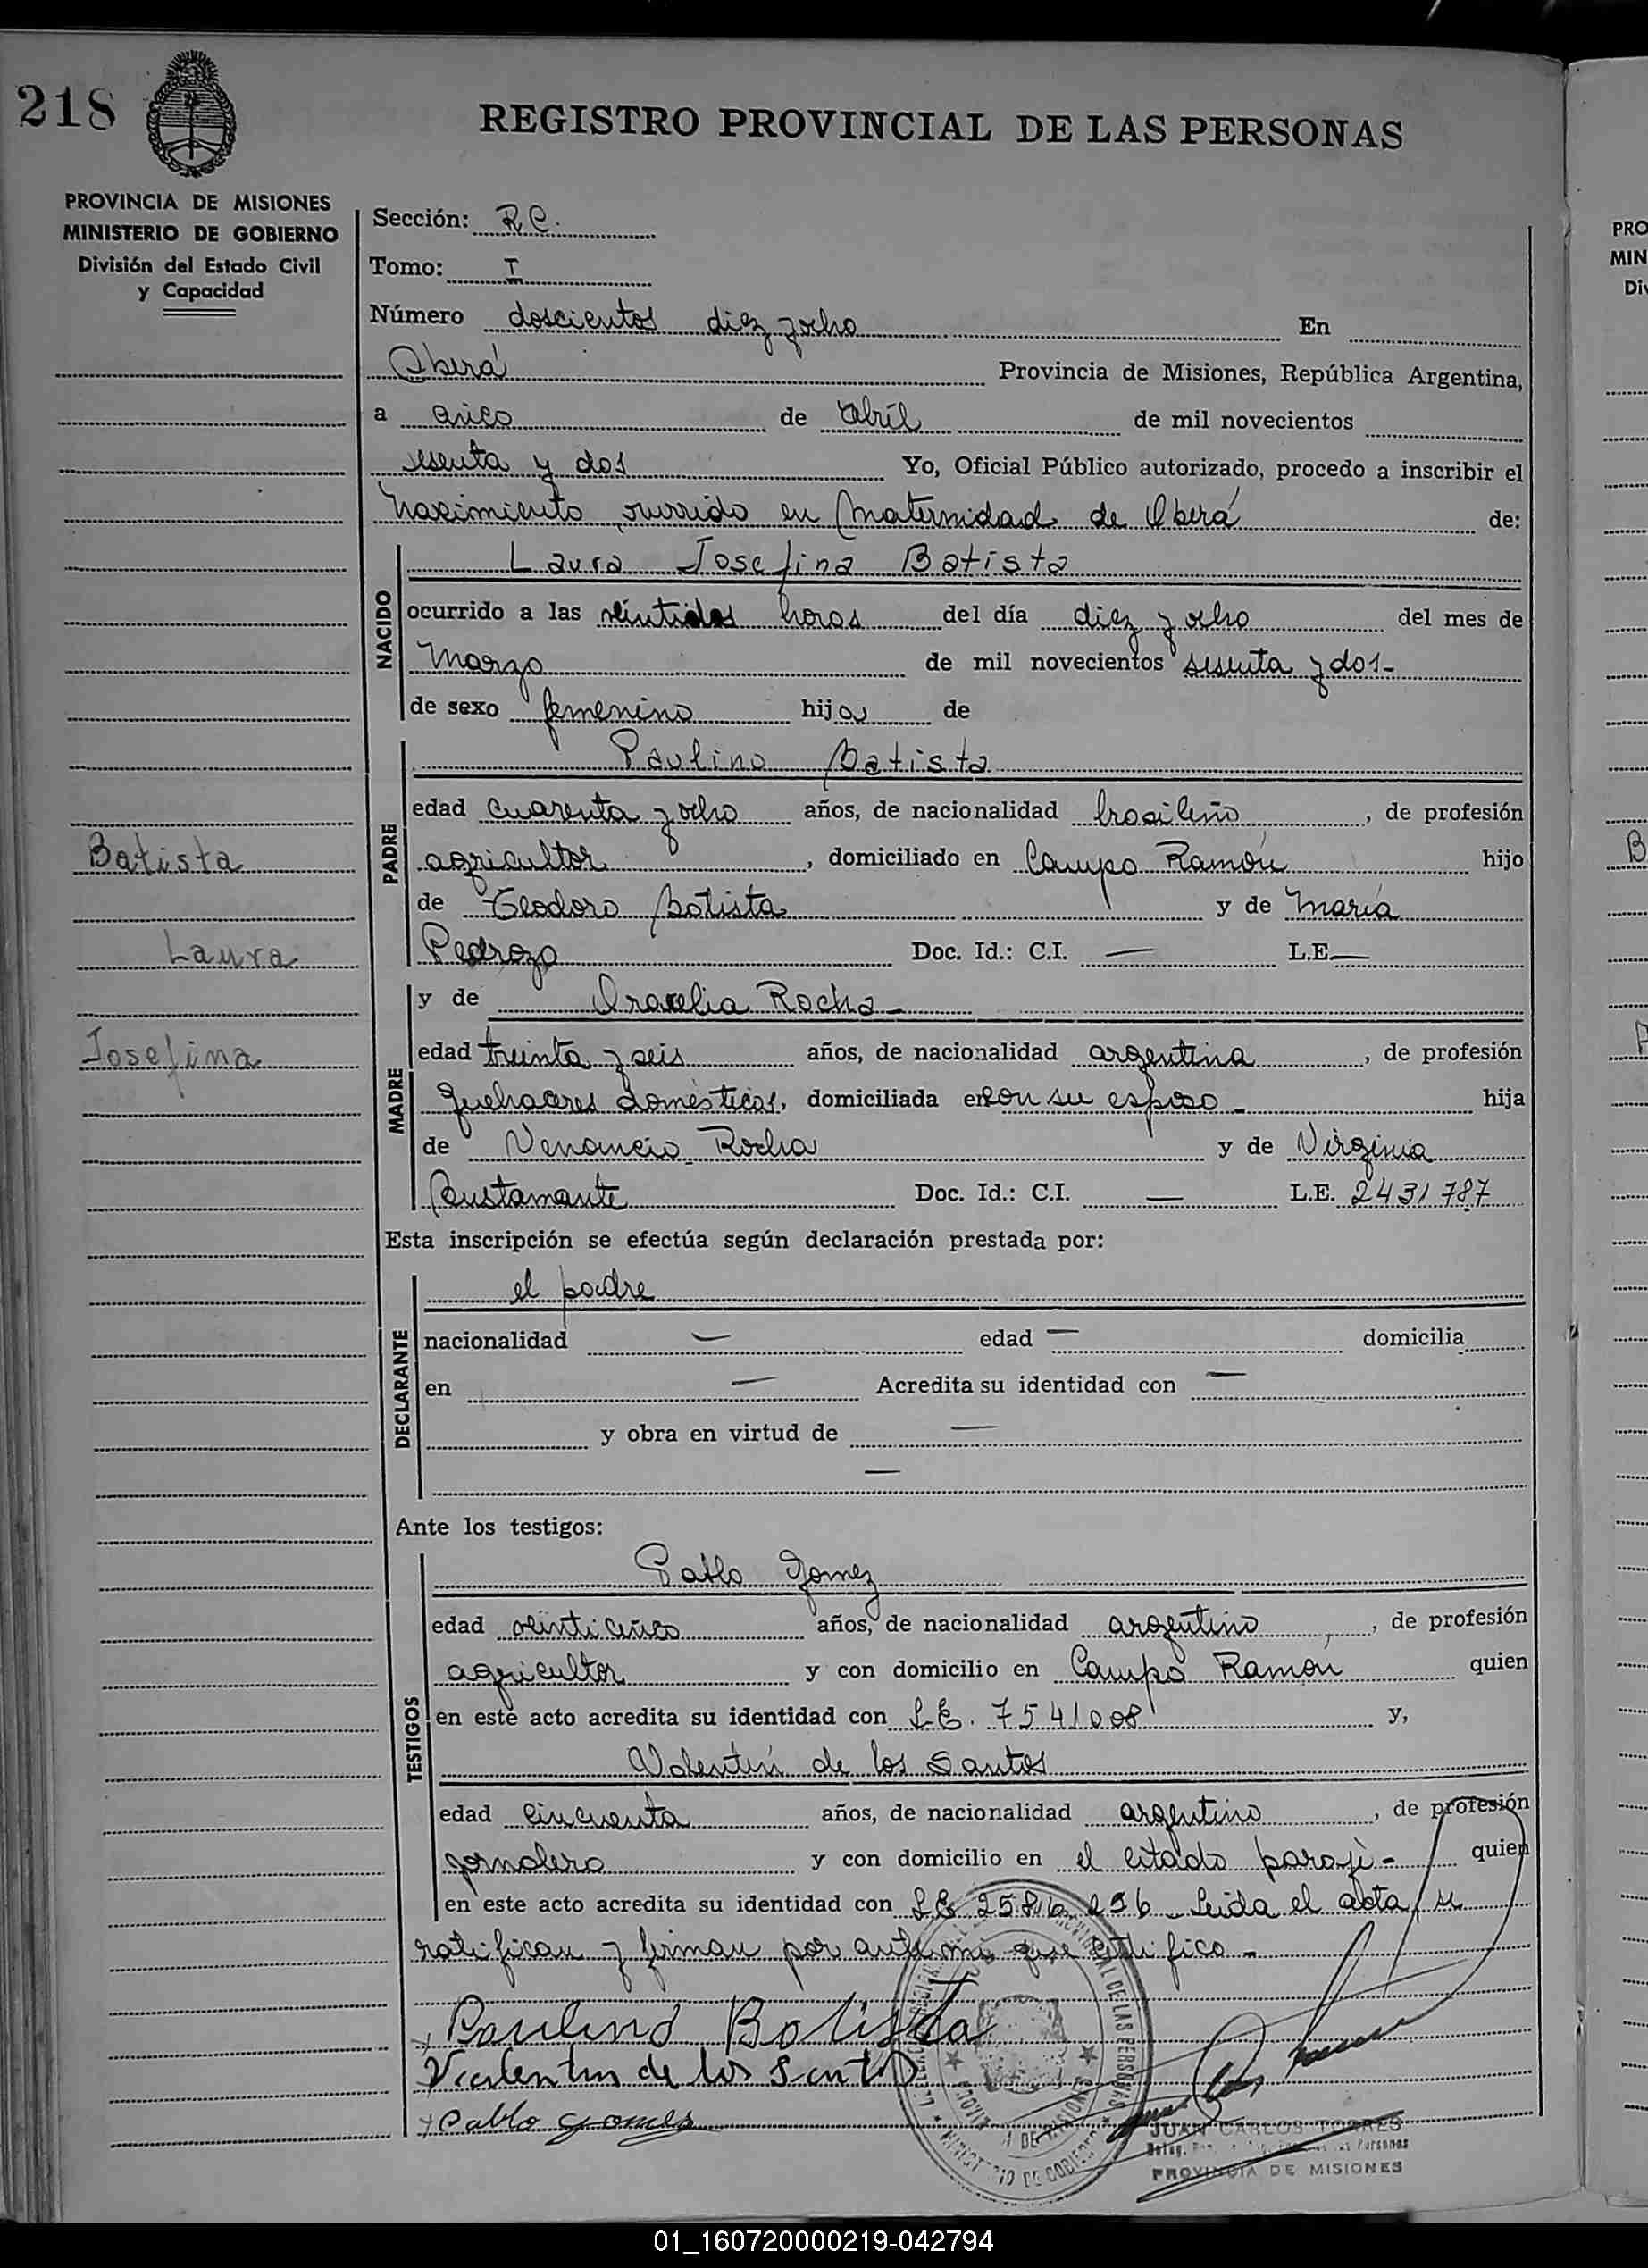 218
REGISTRO PROVINCIAL DE LAS PERSONAS
PROVINCIA DE MISIONES
MINISTERIO DE GOBIERNO
División del Estado Civil
y Capacidad
Sección: R.C.
Tomo: I
Número doscientos diez y ocho En
Oberá Provincia de Misiones, República Argentina,
a cinco de abril de mil novecientos
sesenta y dos Yo, Oficial Público autorizado, procedo a inscribir el
Nacimiento ocurrido en Maternidad de Oberá de:
NACIDO
Laura Josefina Batista
ocurrido a las veintidos horas del día diez y ocho del mes de
Marzo de mil novecientos sesenta y dos-
de sexo femenino hija de
PADRE
Paulino Batista
edad cuarenta y ocho años, de nacionalidad brasileño, de profesión
agricultor, domiciliado en Campo Ramón hijo
de Teodoro Batista y de María
Pedrozo Doc. Id.: C.I. — L.E —
Batista
Laura
Josefina
MADRE
y de Oracelia Rocha -
edad treinta y seis años, de nacionalidad argentina, de profesión
quehaceres domésticos, domiciliada en con su esposo - hija
de Venancio Rocha y de Virginia
Bustamante Doc. Id.: C.I. — L.E. 2431787
Esta inscripción se efectúa según declaración prestada por:
DECLARANTE
el padre
nacionalidad — edad — domicilia
en — Acredita su identidad con —
y obra en virtud de —
—
Ante los testigos:
TESTIGOS
Pablo Gomez
edad veinticinco años, de nacionalidad argentino, de profesión
agricultor y con domicilio en Campo Ramon quien
en este acto acredita su identidad con L.E. 7541008 y,
Valentín de los Santos
edad cincuenta años, de nacionalidad argentino, de profesión
jornalero y con domicilio en el citado paraje - quien
en este acto acredita su identidad con LE 2586 256 - Leida el acta, se
ratifican y firman por ante mi que certifico -
Paulino Batista
Valentin de los Santos
Pablo Gomes
JUAN CARLOS TORRES
PROVINCIA DE MISIONES
PRO
MIN
Div
B
01_160720000219-042794